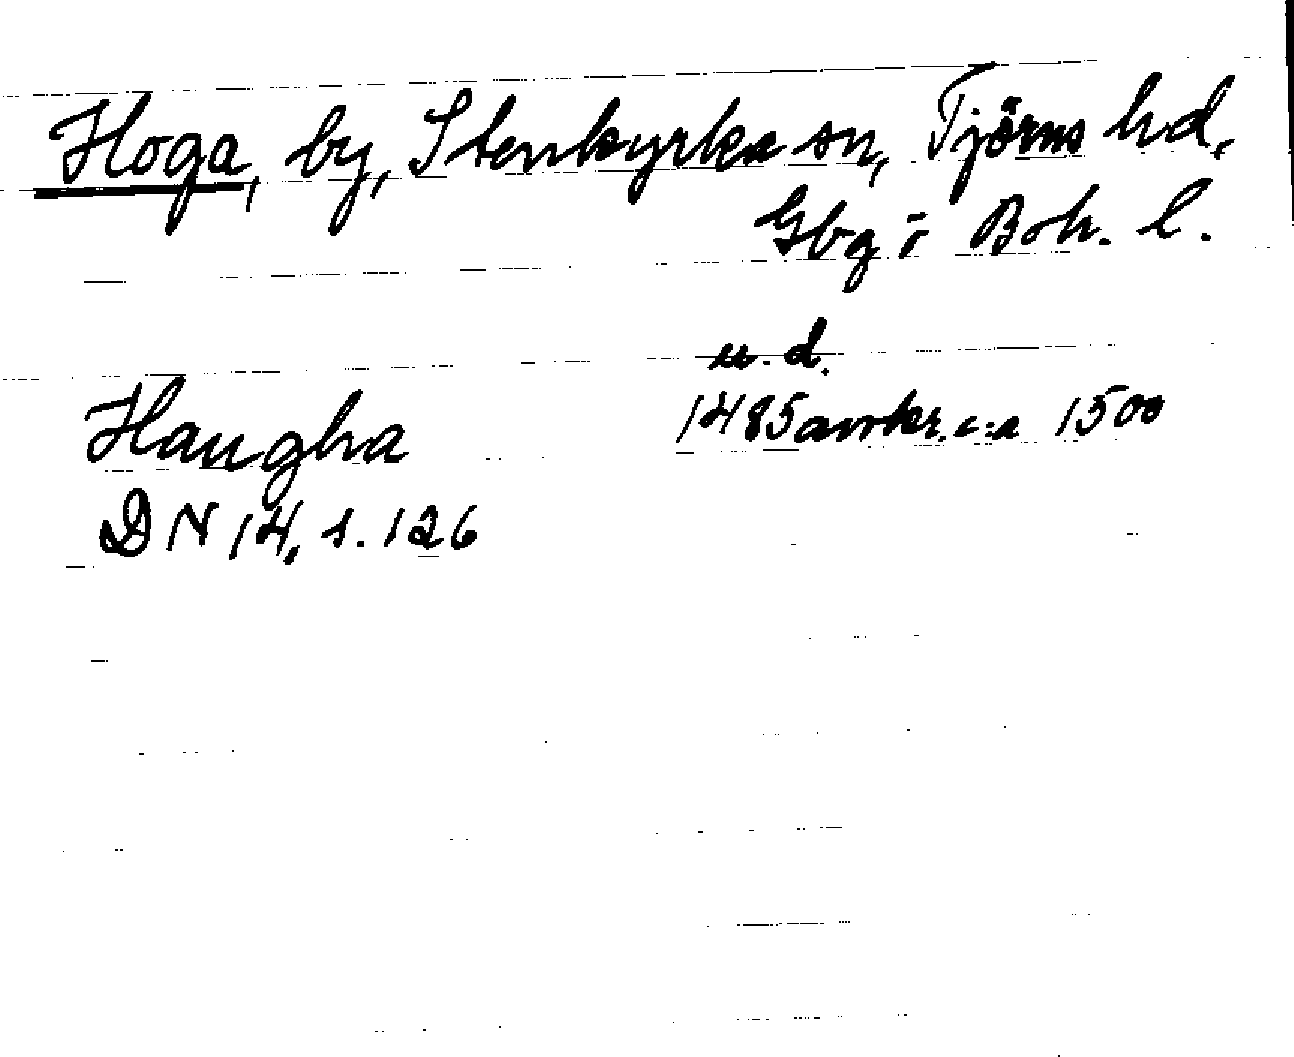 Hoga, by, Stenkyrka sn, Tjörns hd,
Gbg i Boh. l.
u.d.
Haugha 1485 avskr. c:a 1500
DN 14, s. 126